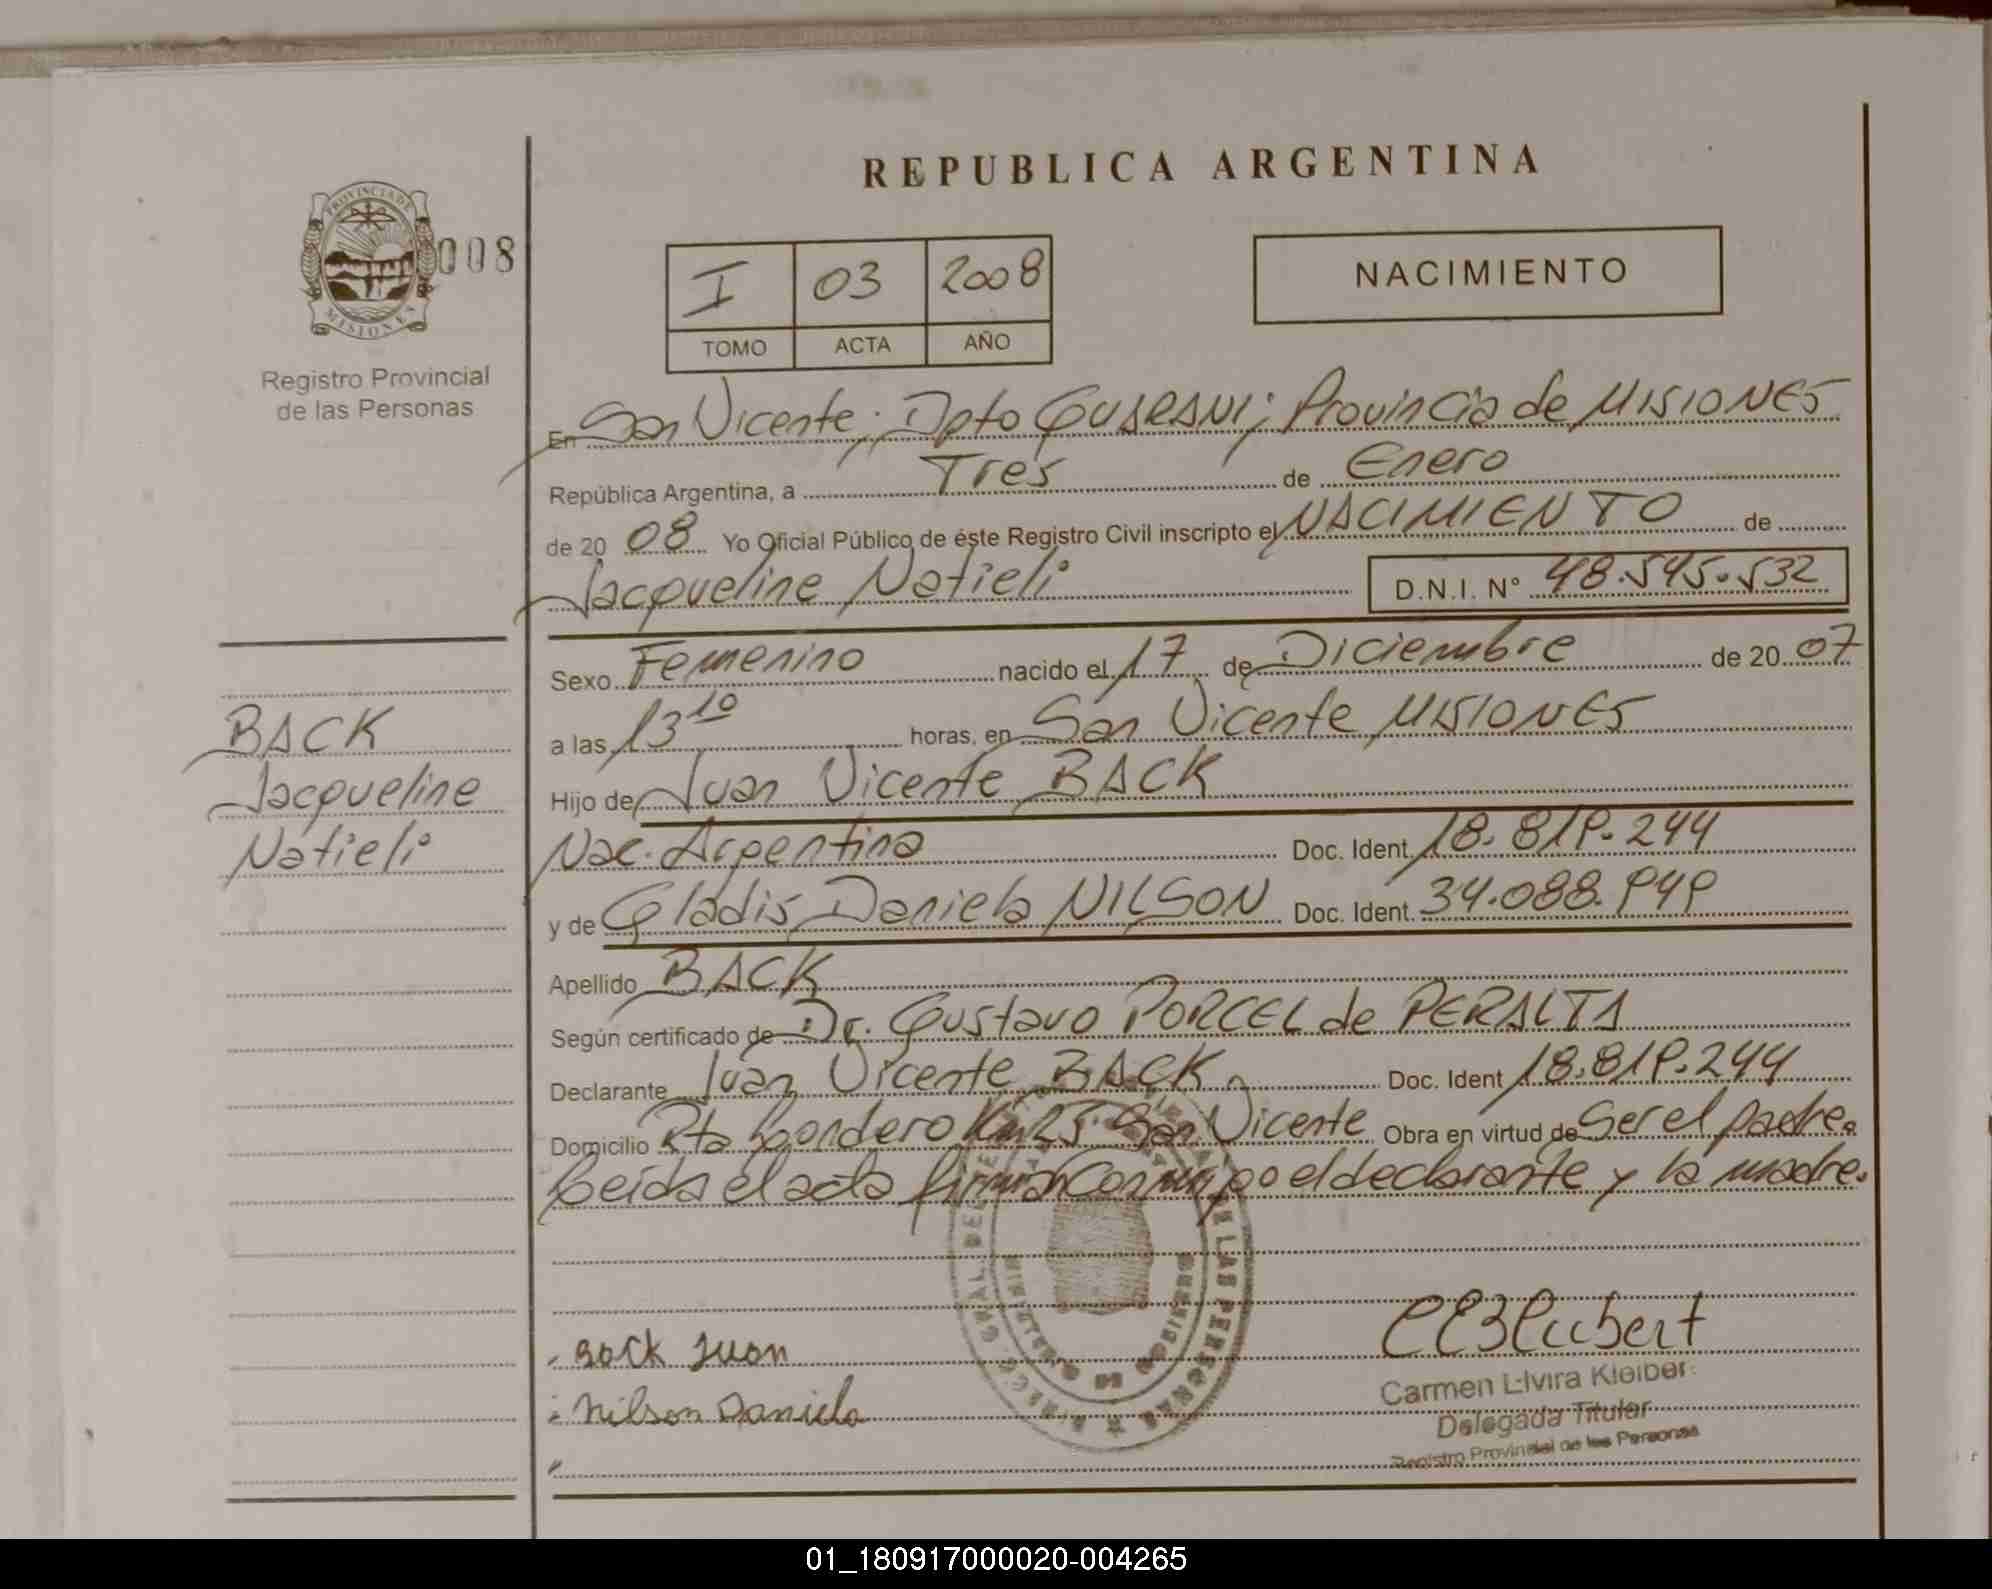 REPUBLICA ARGENTINA
PROVINCIA DE
MISIONES
008
Registro Provincial
de las Personas
I 03 2008
TOMO ACTA AÑO
NACIMIENTO
En San Vicente; Dpto GUARANI; Provincia de MISIONES
República Argentina, a Tres de Enero
de 20 08 Yo Oficial Público de éste Registro Civil inscripto el NACIMIENTO de
Jacqueline Natieli D.N.I. N° 48.545.532
Sexo Femenino nacido el 17 de Diciembre de 20 07
a las 13 10 horas, en San Vicente MISIONES
Hijo de Juan Vicente BACK
Nac. Argentina Doc. Ident. 18.819.244
y de Gladis Daniela NILSON Doc. Ident. 34.088.949
Apellido BACK
Según certificado de Dr. Gustavo PORCEL de PERALTA
Declarante Juan Vicente BACK Doc. Ident 18.819.244
Domicilio Rta Km 25 San Vicente Obra en virtud de Ser el padre.
Leida el acta firman conmigo el declarante y la madre.
BACK
Jacqueline
Natieli
Back Juan
Nilson Daniela
Carmen Elvira Kleiber
Delegada Titular
Registro Provincial de las Personas
DE LAS PERSONAS
01_180917000020-004265